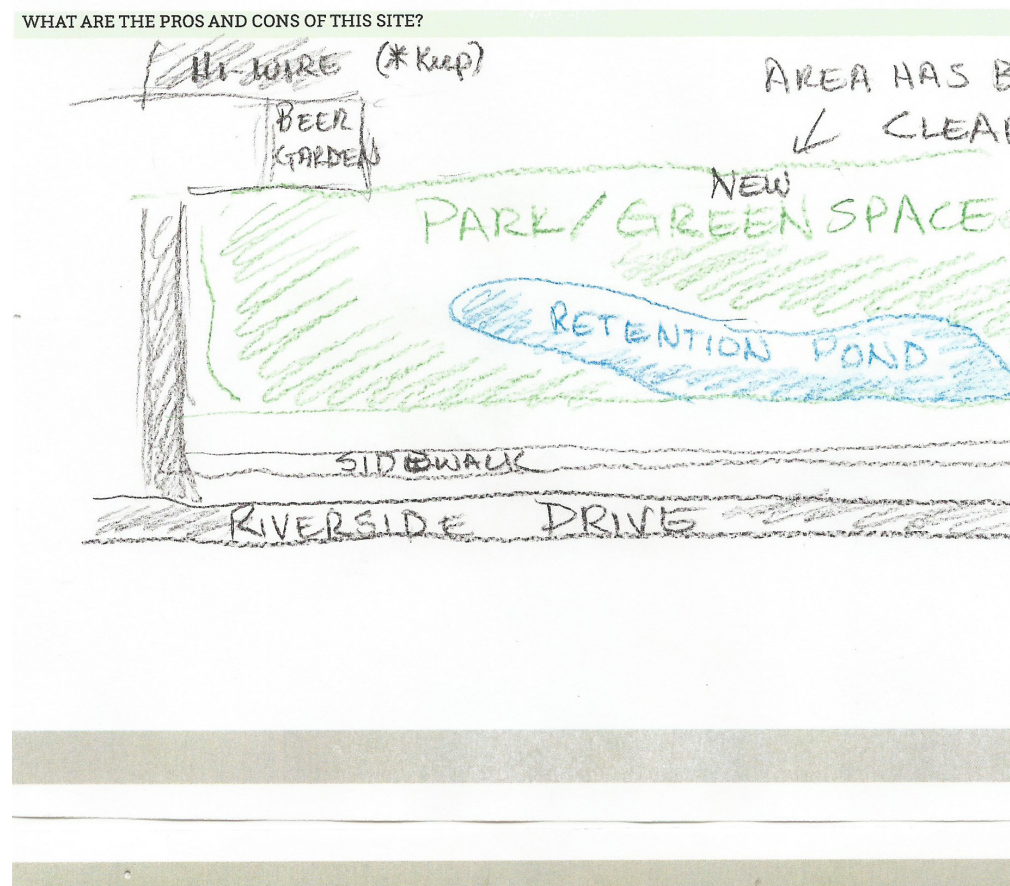 WHAT ARE THE PROS AND CONS OF THIS SITE?
HI-WIRE (* Keep)
BEER
GARDEN
AREA HAS B
CLEAR
NEW
PARK/GREENSPACE
RETENTION POND
SIDEWALK
RIVERSIDE DRIVE